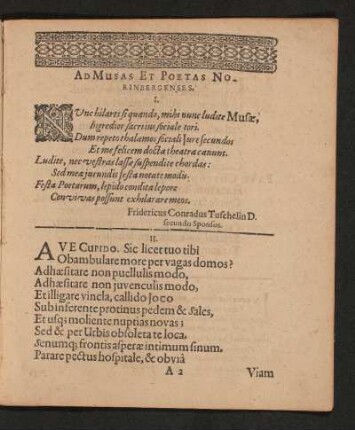 AD MUSAS ET POETAS NO-
RINBERGENSES.
I.
NUnc hilares si quando, mihi nunc ludite Musæ,
Ingredior sacra jura sociale tori.
Dum repeto thalamos sociali Jure secundos
Et me felicem docta theatra canunt.
Ludite, nec vestras lassæ suspendite chordas:
Sed mea jucundis festa notate modis.
Festa Poetarum, lepido condita lepore
Convivas possunt exhilarare meos.
Fridericus Conradus Tuschelin D.
secundò Sponsus.
II.
AVE CUPIDO. Sic licet tuo tibi
Obambulare more per vagas domos?
Adhæsitare non puellulis modo,
Adhæsitare non juvenculis modo,
Et illigare vincla, callido joco
Subinferente protinus pedem & sales,
Et usq; moliente nuptias novas;
Sed & per Urbis obsoleta te loca,
Senumq; frontis asperæ intimum sinum,
Parare pectus hospitale, & obviâ
A 2 Viam